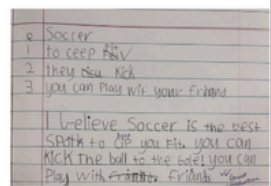 Soccer
1 to ceep Fit
2 they Kick
3 you can Play wit your friend
I believe Soccer is the best
SPoTh to CeeP you Fit. you can
KicK The ball to the Gole! you can
Play with friends